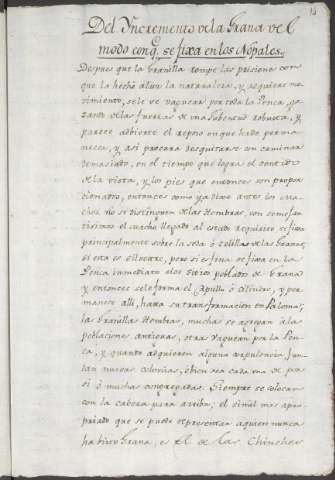 Del Yncremento de la Grana, y el
modo con q. se fixa en los Nopales.
Despues que la Granilla rompe las pricione con
que la hechó ativa la naturaleza, y adquiere mo
vimiento, se le ve vaguear por toda la Penca, go
zando de la fuerza de una Jubentud robusta, y
parece advierte el reposo en que ha de perma
necer, y asi procura desquitarse con caminar
demasiado, en el tiempo que logra el sentido
de la vista, y los pies que entonces son propor
cionados, entonces como ya dixe antes los Ma
chos no se distinguen de las Hembras, con cuyo
el macho llegado al estado
principalmente sobre la seda ó telillas de la Grana,
si esta es silvestre, pero si es fina se fixa en la
Penca inmediato á los Sitios poblados de Grana
y entonces se le forma el Capullo ó Alfiler, y per
manece alli, hasta su transformacion en Paloma;
las Granillas Hembras, muchas se agregan á las
poblaciones antiguas, otras vaguean por la Pen
ca, y quando adquieren alguna corpulencia, fun
dan nuevas colonias, ó bien sea cada una de por
si ó muchas congregadas. Siempre se colocan
con la cabeza para arriba; el simil mas apro
priado que se puede representar á quien nunca
ha visto Grana, es el de las Chinches